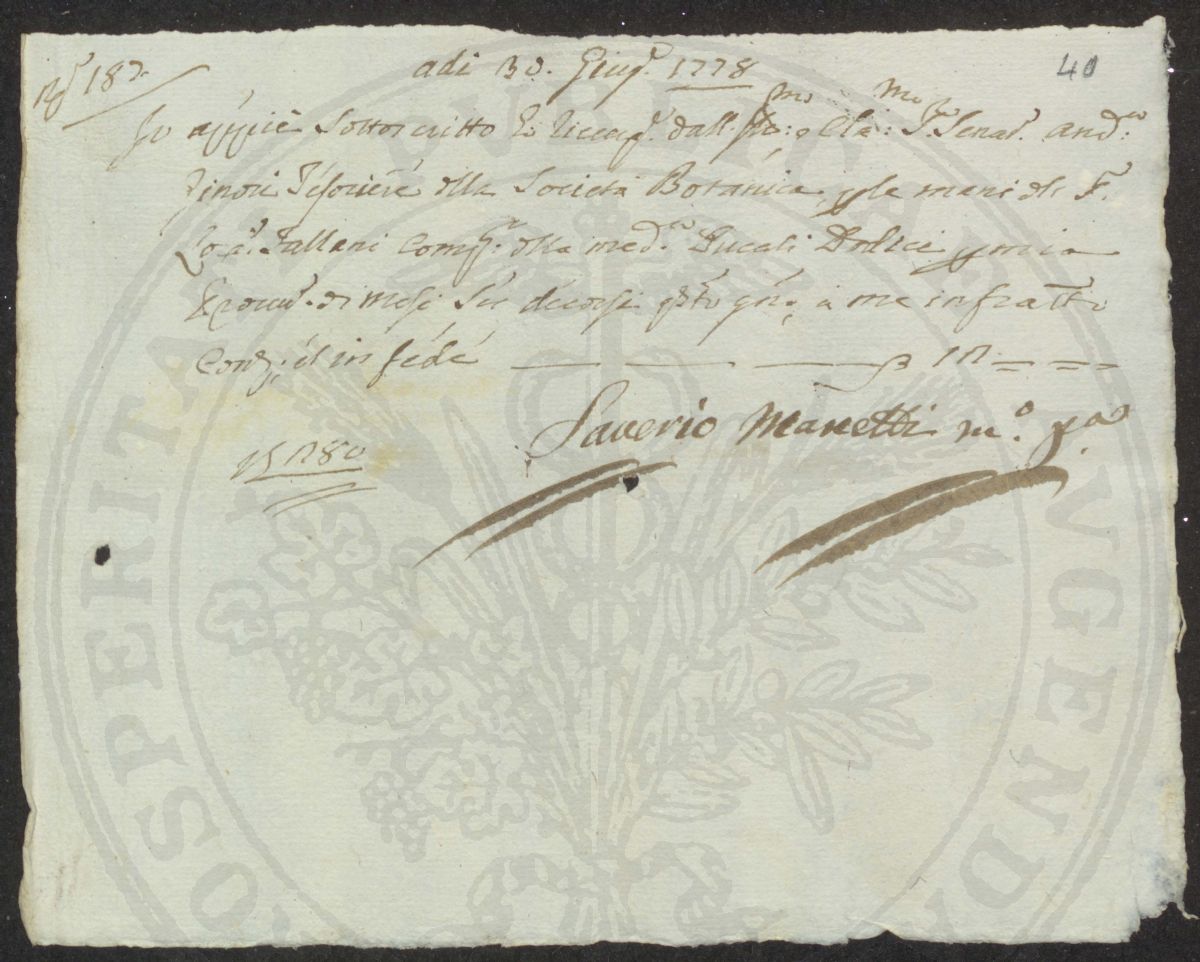 N.º 187. adi 30. Giug.º 1778 40
Io appiè Sottoscritto ho riceuu.º dall Ill:mo e Cla:mo S.re Senat.e And.a
Ginori Tesoriere della Società Botanica, p le mani di F.
Tallani Comp.º della med.a Ducati Dodici p mia
Provv.e di mesi Sei decorsi a me infratto
cont.i et in fede — — — 12.—.—
Saverio Manetti m.º pp.a
PROSPERITATI PVBLICAE AVGENDAE